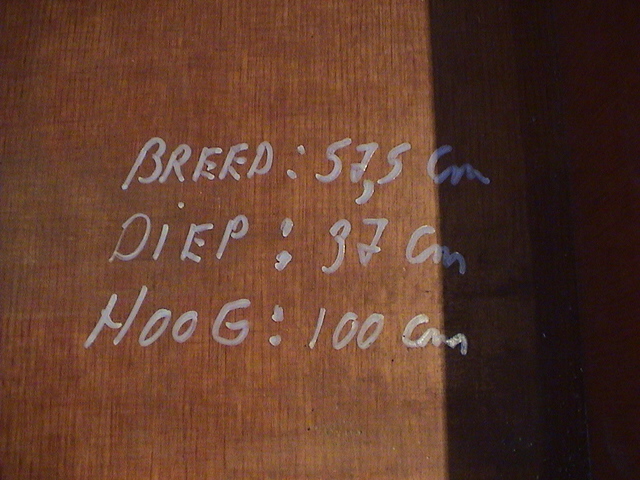 BREED: 57,5 cm
DIEP: 37 cm
HOOG: 100 cm